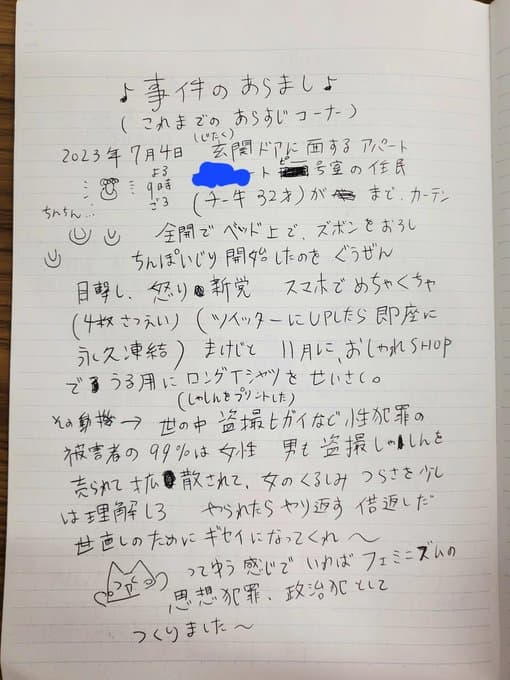 ♪事件のあらまし♪
(これまでの あらすじコーナー)
(じたく)
2023年 7月4日 玄関ドアに面するアパート
よる
9時
ごろ
ート 号室の住民
ピー
(チー牛 32才)が まで、カーテン
ちんちん…
全開でベッド上で、ズボンをおろし
ちんぽいじり開始したのを ぐうぜん
目撃し、怒り 新党 スマホでめちゃくちゃ
(4枚さつえい) (ツイッターにUPしたら即座に
永久凍結) まけじと 11月に、おしゃれSHOP
で うる用にロングTシャツをせいさく。
(しゃしんをプリントした)
その動機→ 世の中 盗撮ヒガイなど性犯罪の
被害者の99%は女性 男も盗撮しゃしんを
売られて拡散されて、女のくるしみ つらさを少し
は理解しろ やられたらやり返す 借返しだ
世直しのためにギセイになってくれ〜
って ゆう感じで いわば フェミニズムの
思想犯罪、政治犯として
つくりました〜